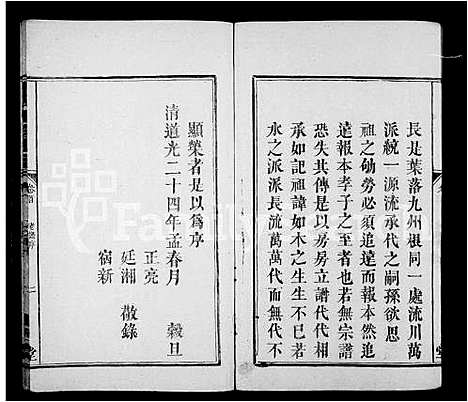 長是葉落九州根同一處流川萬
派統一源流承代之嗣孫欲思
祖之劬勞必須追遠而報本然追
遠報本孝子之至者也若無宗譜
恐失其傳是以房房立譜代代相
承如記祖諱如木之生生不已若
水之派派長流萬萬代而無代不
顯榮者是以為序
清道光二十四年孟春月 穀旦
正亮
廷湘 敬錄
宿新